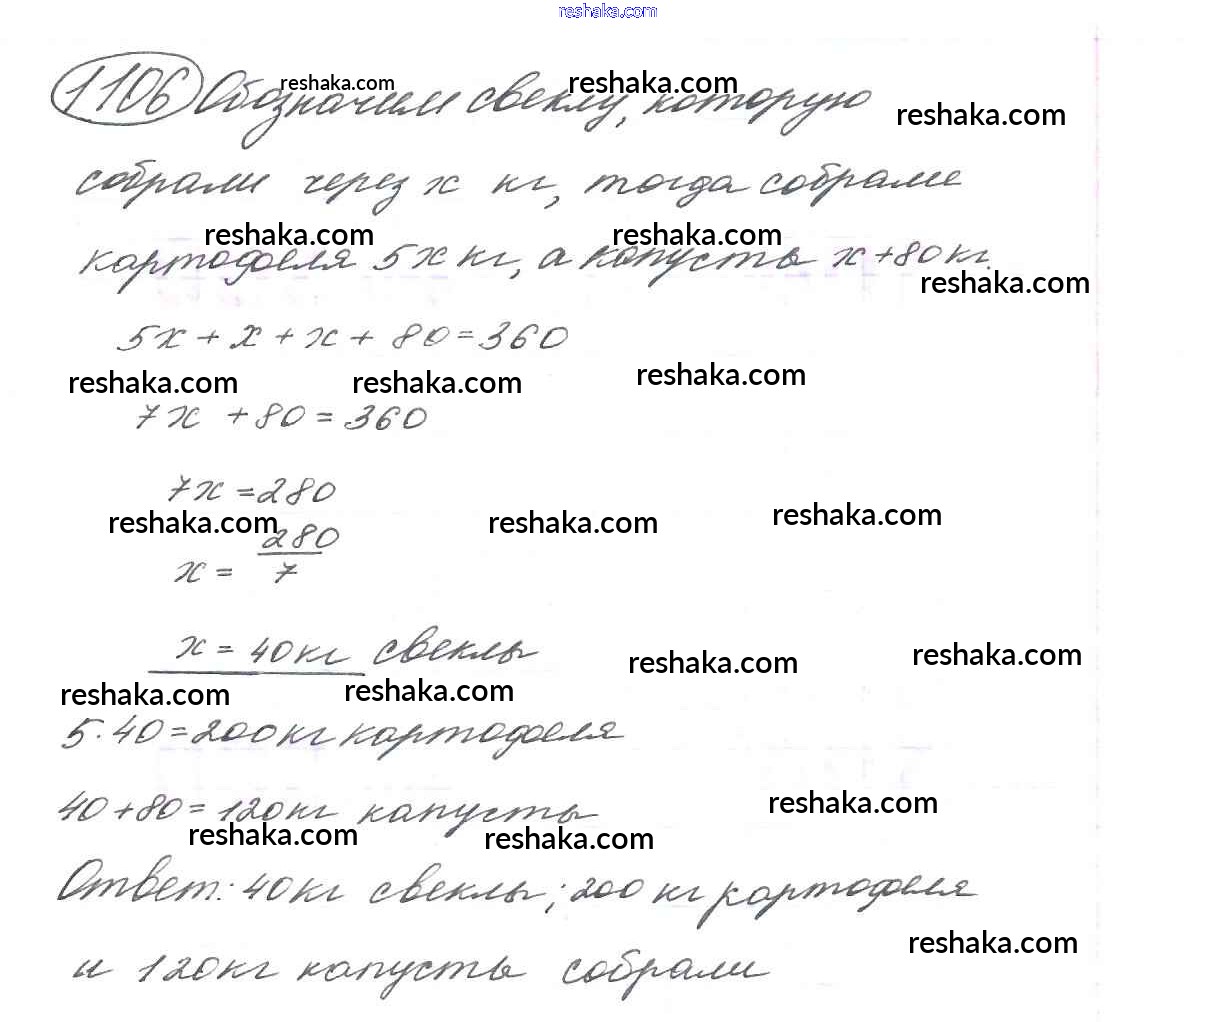 reshaka.com
1106 Обозначим свеклу, которую
reshaka.com reshaka.com reshaka.com
собрали через x кг, тогда собрали
reshaka.com reshaka.com
картофеля 5x кг, а капусты x+80кг.
reshaka.com
5x + x + x + 80 = 360
reshaka.com reshaka.com reshaka.com
7x + 80 = 360
7x = 280
reshaka.com reshaka.com reshaka.com
x = 280/7
x = 40кг свеклы
reshaka.com reshaka.com
reshaka.com reshaka.com
5·40=200кг картофеля
40+80=120кг капусты
reshaka.com
reshaka.com reshaka.com
Ответ: 40кг свеклы; 200 кг картофеля
reshaka.com
и 120кг капусты собрали